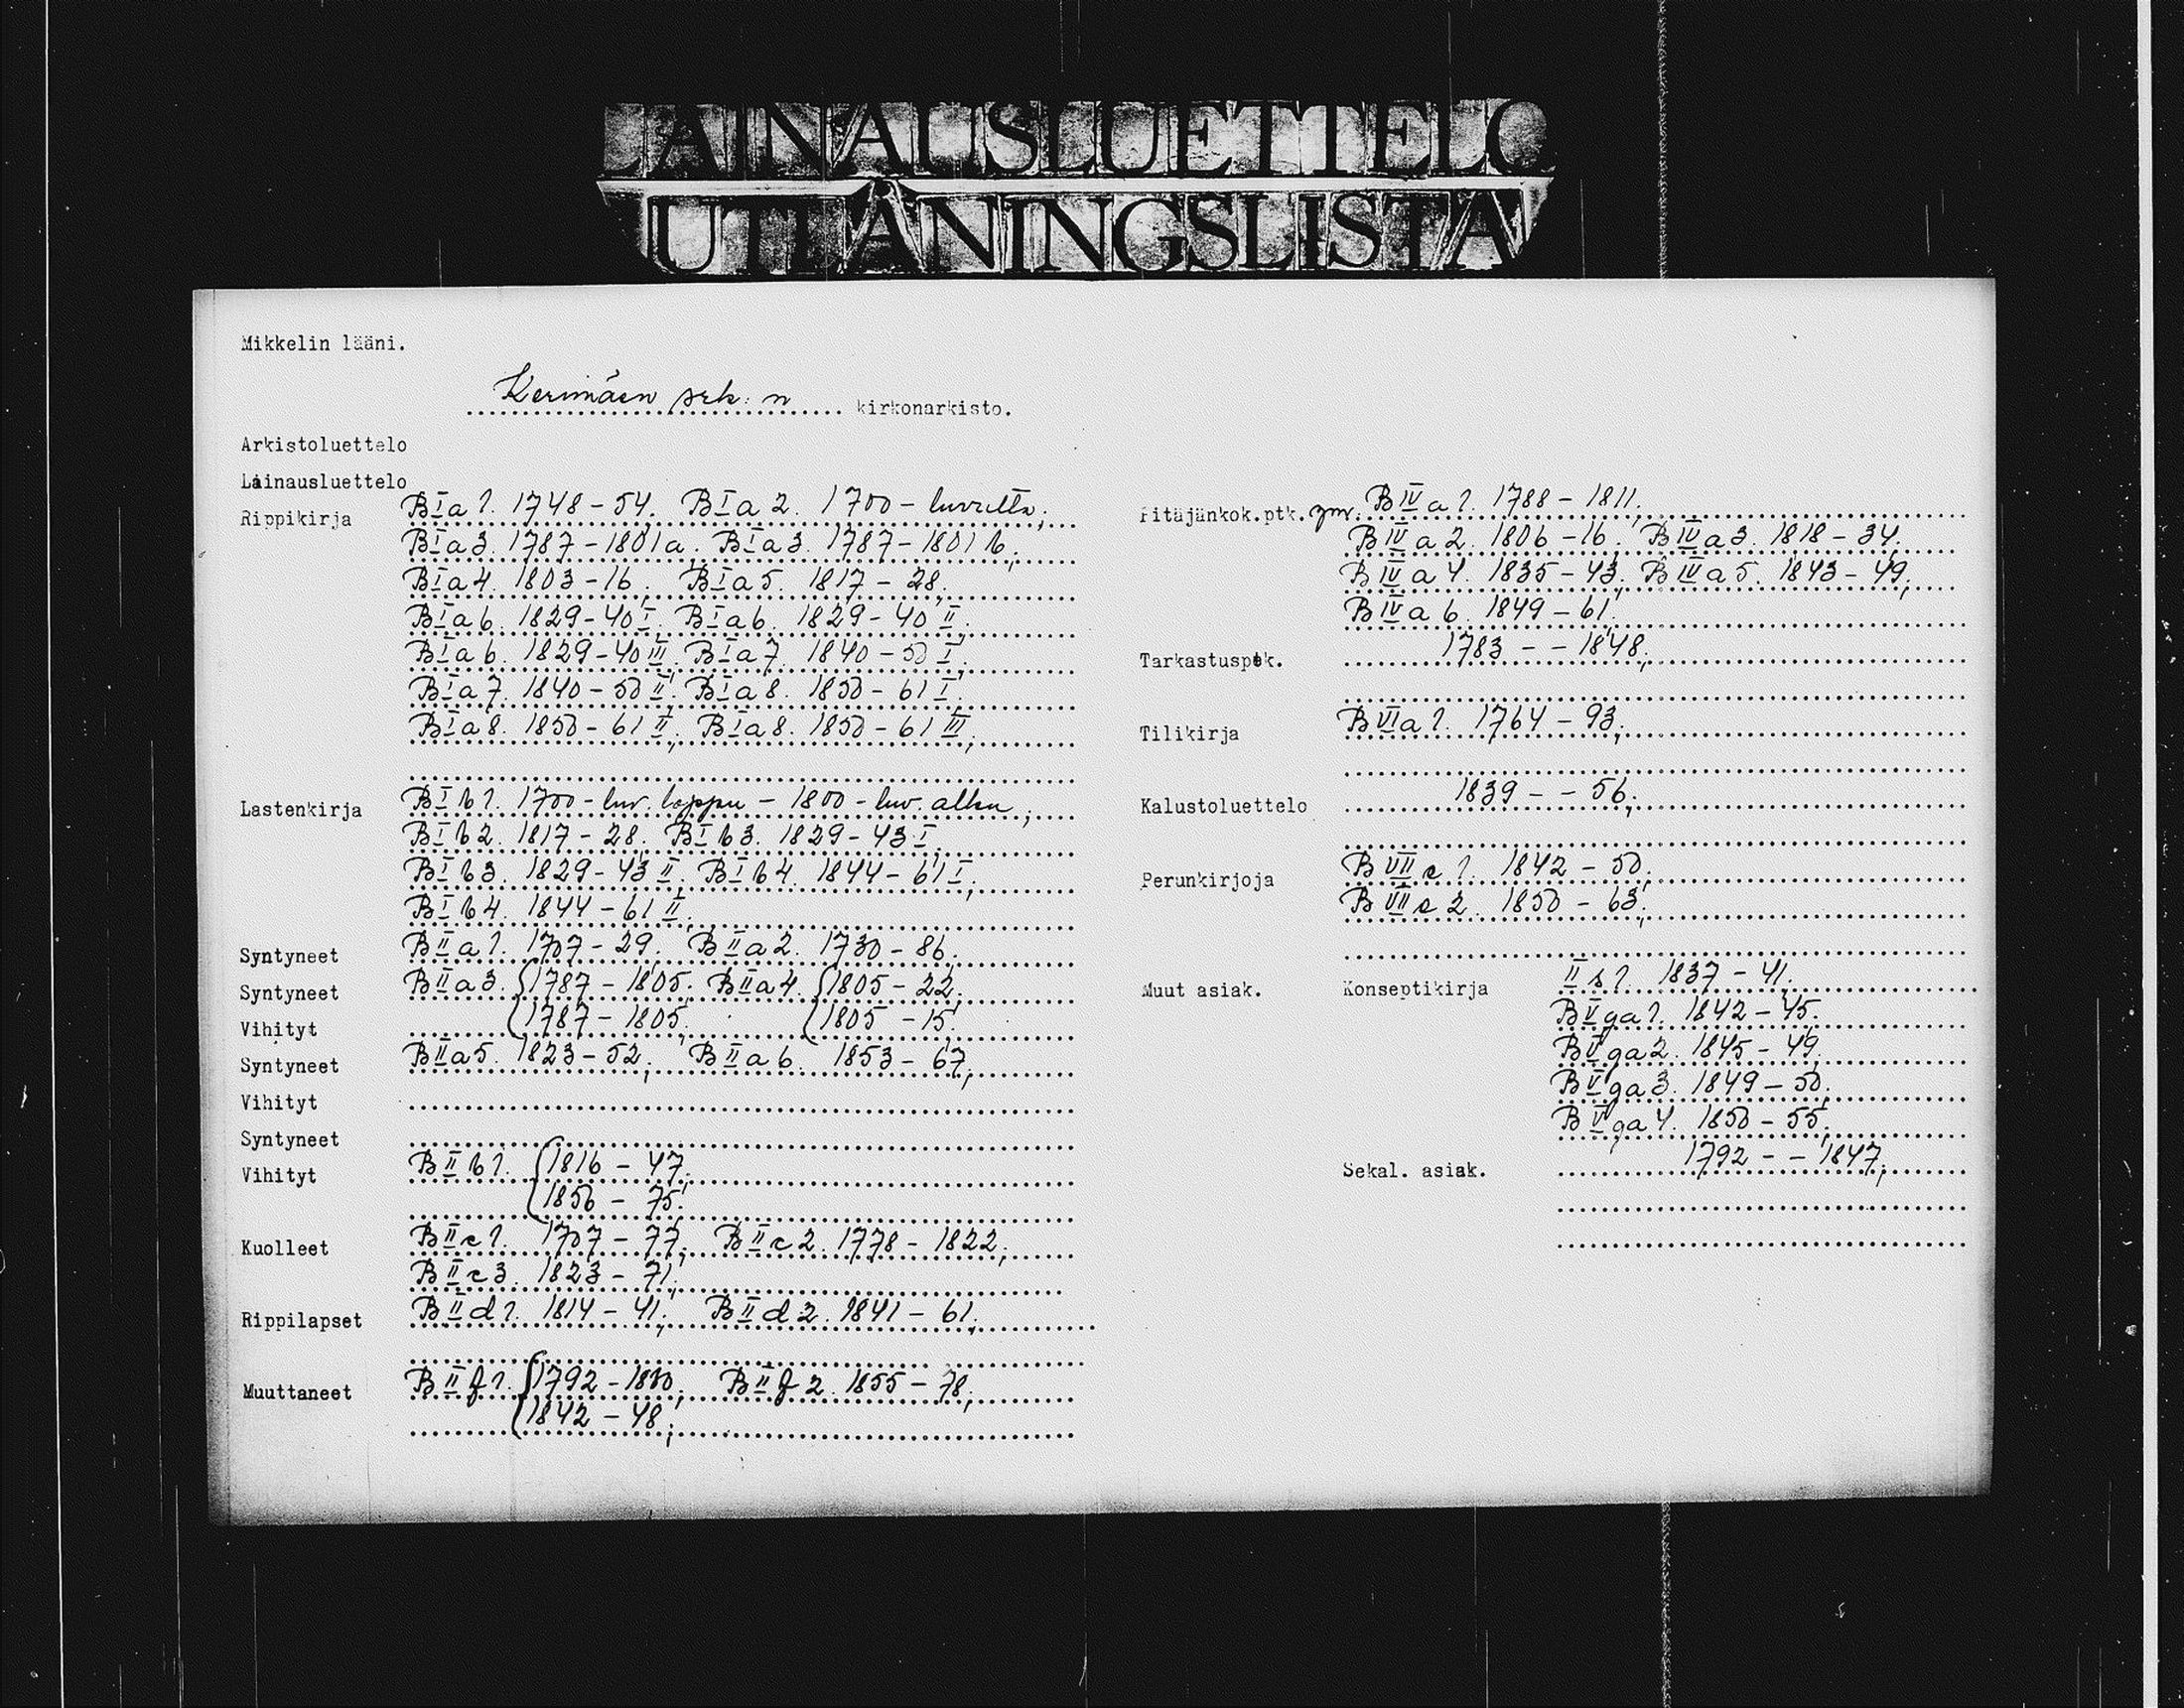 LAINAUSLUETTELO
UTLÅNINGSLISTA
Mikkelin lääni.
Kerimäen srk:n kirkonarkisto.
Arkistoluettelo
Lainausluettelo
Rippikirja BIa1. 1748-54. BIa2. 1700-luvulta;
BIa3. 1787-1801a. BIa3. 1787-1801b;
BIa4. 1803-16; BIa5. 1817-28;
BIa6. 1829-40 I. BIa6. 1829-40 II;
BIa6. 1829-40 III; BIa7. 1840-50 I;
BIa7. 1840-50 II; BIa8. 1850-61 I;
BIa8. 1850-61 II; BIa8. 1850-61 III;
Lastenkirja BIb1. 1700-luv. loppu - 1800-luv. alku;
BIb2. 1817-28. BIb3. 1829-43 I.
BIb3. 1829-43 II; BIb4. 1844-61 I;
BIb4. 1844-61 II;
Syntyneet BIIa1. 1707-29. BIIa2. 1730-86;
Syntyneet BIIa3. {1787-1805. BIIa4. {1805-22;
Vihityt {1787-1805; {1805-15;
Syntyneet BIIa5. 1823-52; BIIa6. 1853-67;
Vihityt
Syntyneet
Vihityt BIIb1. {1816-47;
{1856-75;
Kuolleet BIIc1. 1707-77; BIIc2. 1778-1822;
BIIc3. 1823-71;
Rippilapset BIId1. 1814-41; BIId2. 1841-61;
Muuttaneet BIIf1. {1792-1810; BIIf2. 1855-78;
{1842-48;
Pitäjänkok.ptk. ym. BIVa1. 1788-1811.
BIVa2. 1806-16; BIVa3. 1818-34.
BIVa4. 1835-43; BIVa5. 1843-49;
BIVa6. 1849-61;
Tarkastusptk. 1783 - - 1848;
Tilikirja BVIa1. 1764-93;
Kalustoluettelo 1839 - - 56;
Perunkirjoja BVIIc1. 1842-50;
BVIIc2. 1850-63;
Muut asiak. Konseptikirja II s1. 1837-41.
BVga1. 1842-45.
BVga2. 1845-49.
BVga3. 1849-50.
BVga4. 1850-55;
Sekal. asiak. 1792 - - 1847;